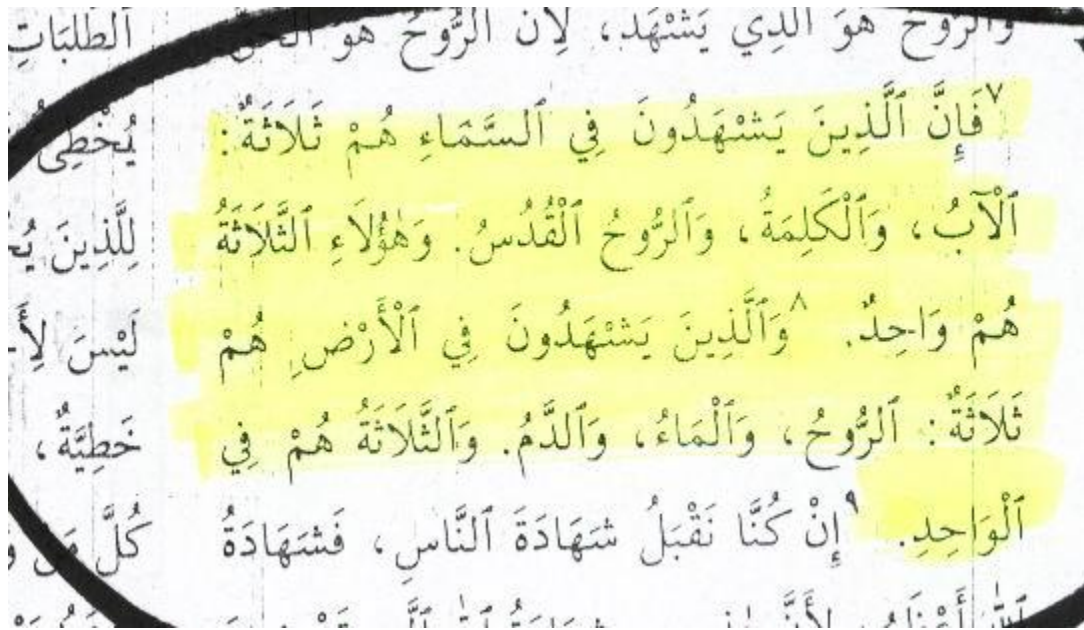 وَٱلرُّوحُ هُوَ ٱلَّذِي يَشْهَدُ، لِأَنَّ ٱلرُّوحَ هُوَ ٱلْحَقُّ
٧فَإِنَّ ٱلَّذِينَ يَشْهَدُونَ فِي ٱلسَّمَاءِ هُمْ ثَلَاثَةٌ:
ٱلْآبُ، وَٱلْكَلِمَةُ، وَٱلرُّوحُ ٱلْقُدُسُ. وَهٰؤُلَاءِ ٱلثَّلَاثَةُ
هُمْ وَاحِدٌ. ٨وَٱلَّذِينَ يَشْهَدُونَ فِي ٱلْأَرْضِ هُمْ
ثَلَاثَةٌ: ٱلرُّوحُ، وَٱلْمَاءُ، وَٱلدَّمُ. وَٱلثَّلَاثَةُ هُمْ فِي
ٱلْوَاحِدِ. ٩إِنْ كُنَّا نَقْبَلُ شَهَادَةَ ٱلنَّاسِ، فَشَهَادَةُ
ٱلطَّلَبَاتِ
يُخْطِئُ
لِلَّذِينَ
لَيْسَ
خَطِيَّةٌ،
كُلَّ